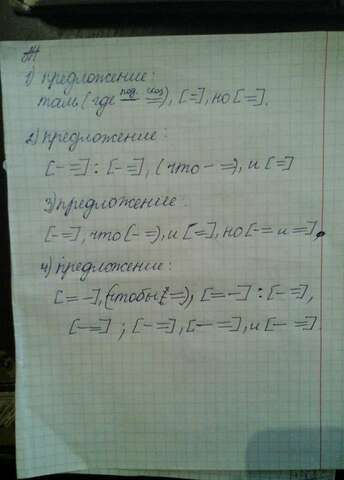 1) предложение:
там, (где под. сказ =), [=], но [=].
2) предложение:
[- =] : [- =], (что - =), и [=]
3) предложение:
[- =], что (- =), и [=], но [- = и =].
4) предложение:
[= -], (чтобы =), [= -] : [- =],
[- =] ; [- =], [- =], и [- =].